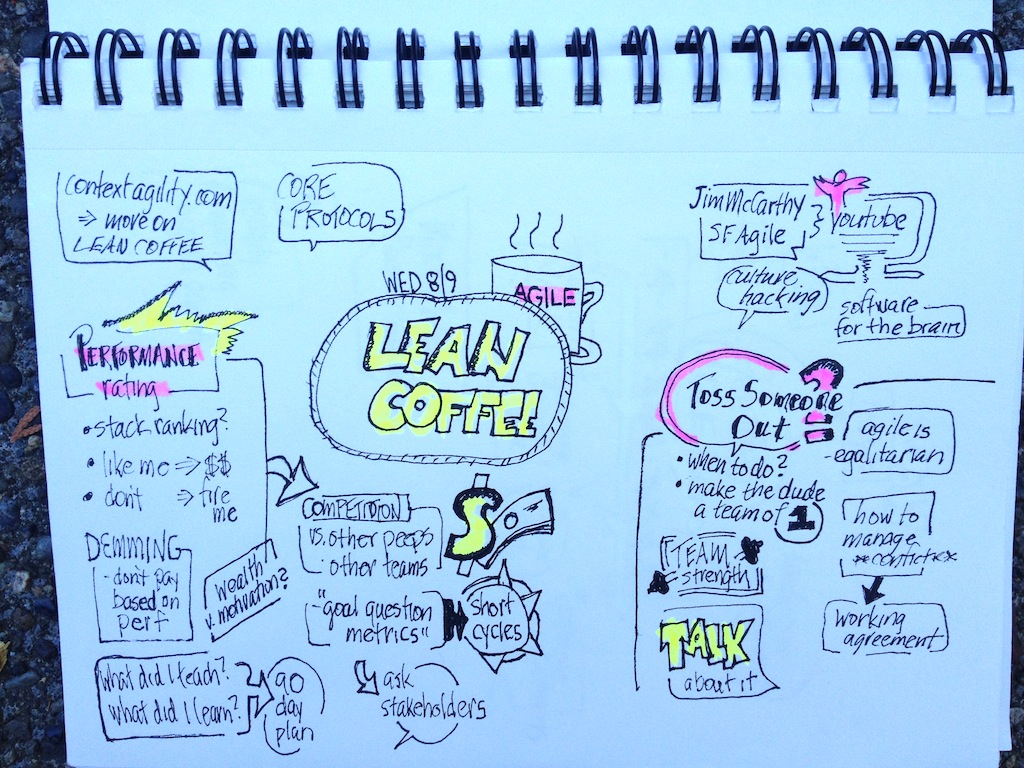 contextagility.com
⇒ more on
LEAN COFFEE
CORE
PROTOCOLS
Jim McCarthy
SF Agile
youtube
culture
hacking
software
for the brain
WED 8/9
AGILE
LEAN
COFFEE
PERFORMANCE
rating
• stack ranking?
• like me ⇒ $$
• don't ⇒ fire
me
DEMMING
- don't pay
based on
perf
wealth
v. motivation?
What did I teach?
What did I learn?
90
day
plan
COMPETITION
vs. other peeps
: other teams
$
- "goal question
metrics"
short
cycles
ask
stakeholders
Toss Someone
Out
?
• when to do?
• make the dude
a team of 1
TEAM
= strength
TALK
about it
agile is
-egalitarian
how to
manage
**conflict**
working
agreement